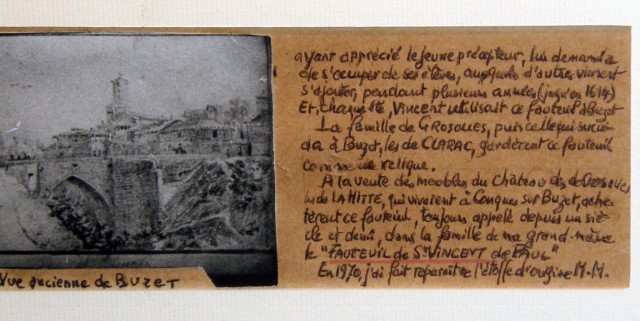 ayant apprécié le jeune précepteur, lui demanda
de s'occuper de ses élèves, auxquels d'autres vinrent
s'ajouter, pendant plusieurs années (jusqu'en 1614)
Et, chaque été, Vincent utilisait ce fauteuil à Buzet
La famille de GROSOLLES, puis celle qui succé-
da à Buzet, les de CLARAC, gardèrent ce fauteuil
comme une relique.
A la vente des meubles du Château des de
de LAHITTE, qui vivaient à Conques sur Buzet, ache-
tèrent ce fauteuil, toujours appelé depuis un siè-
cle et demi, dans la famille de ma grand-mère
le "FAUTEUIL de St VINCENT de PAUL"
En 1970, j'ai fait reparaître l'étoffe d'origine M.M.
Vue ancienne de BUZET